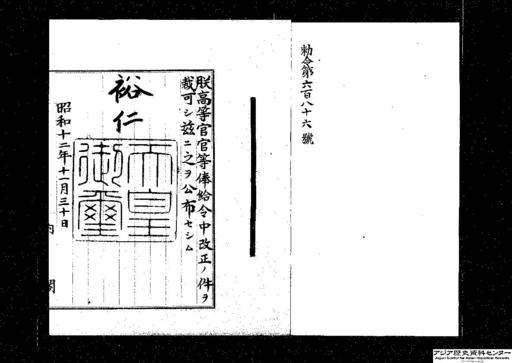 勅令第六百八十六號
朕高等官官等俸給令中改正ノ件ヲ
裁可シ茲ニ之ヲ公布セシム
裕仁
天皇
御璽
昭和十二年十一月三十日
内閣
アジア歴史資料センター
Japan Center for Asian Historical Records